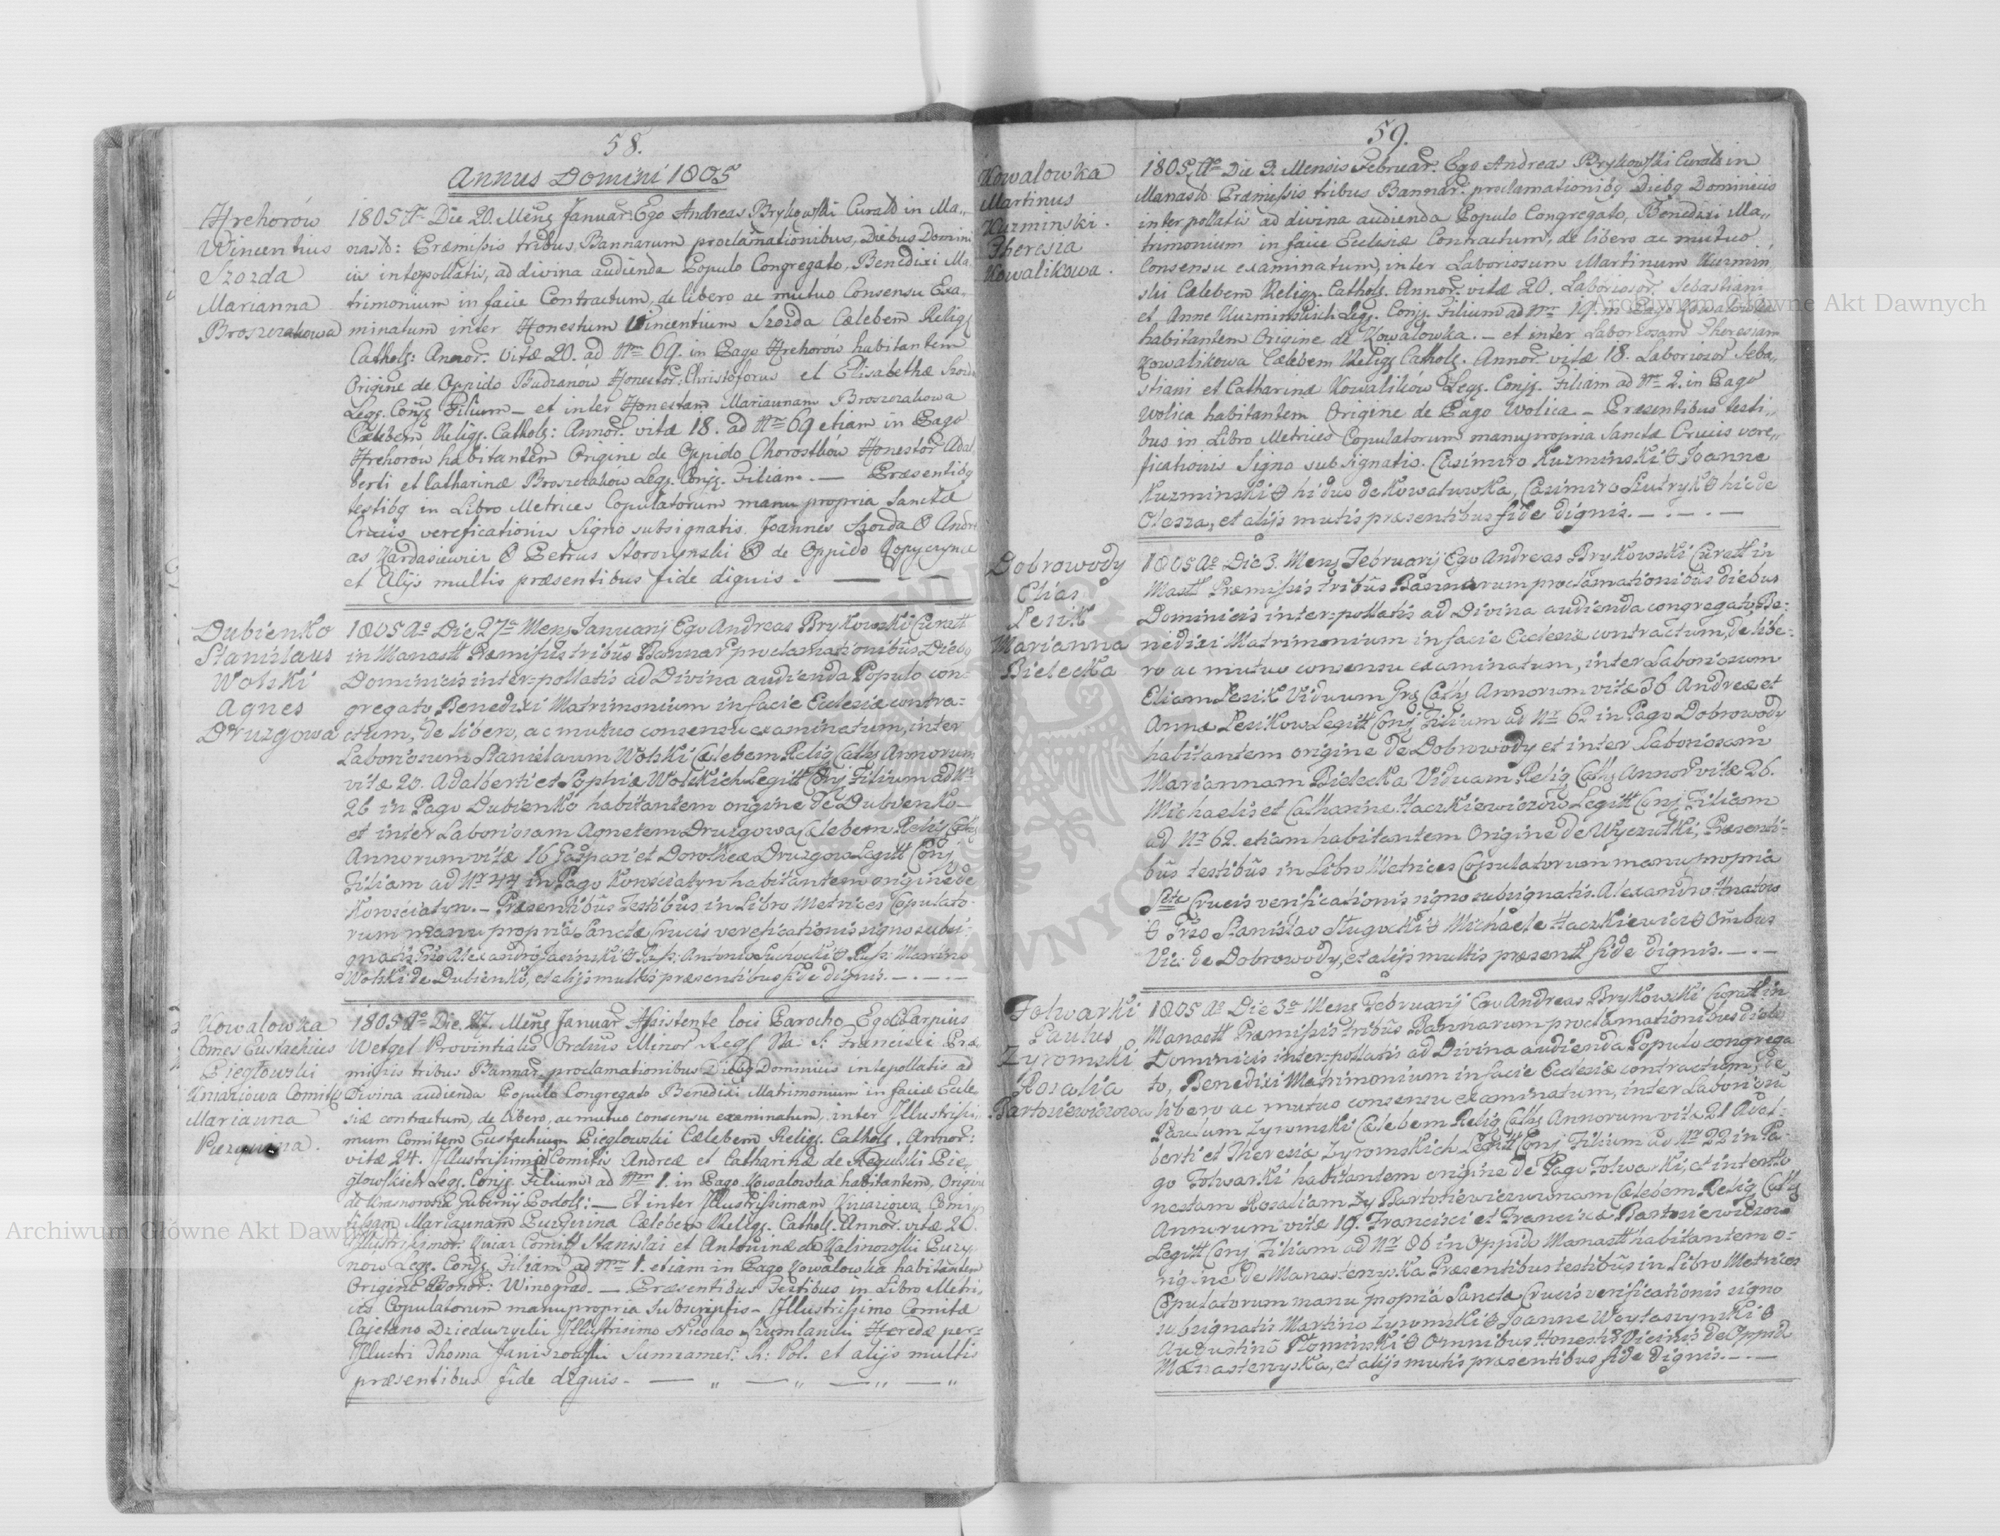 58.
Annus Domini 1805
Hrehorów
Wincentius
Szozda
Marianna
Broszczakowa
1805 Ao Die 20. Mens Januar: Ego Andreas Brykowski Curato in Ma„
nast: Præmissis tribus Bannarum proclamationibus, Diebus Domini
cis intepollatis, ad divina audienda Populo Congregato, Benedixi Ma„
trimonium in facie Contractum, de libero ac mutuo Consensu Exa„
minatum inter Honestum Vincentium Szozda Cælebem Relig
Cathol: Annor. vitæ 20. ad Nrm 69. in Pago Hrehorów habitantem
Origine de Oppido Budzanów Honestor: Christoforus et Elisabethæ Szozda
Leg. Conj. Filium — et inter Honestam Mariannam Broszczakowa
Cælebem Relig. Cathol: Annor. vitæ 18. ad Nrm 69 etiam in Pago
Hrehorow habitantem Origine de Oppido Chorostków Honestor Adal
berti et Catharinæ Broszczaków Leg. Conj. Filiam. — Præsentibq
testibq in Libro Metrices Copulatorum manu propria Sanctæ
Crucis vereficationis Signo subsignatis. Joannes Szozda et Andre
as Kardasiewicz et Petrus Horowinski et de Oppido Kopyczynce
et Alijs multis præsentibus fide dignis. — — —
Dubienko
Stanislaus
Wolski
Agnes
Druzgowa
1805 Ao Die 27a Mens Januarij Ego Andreas Brykowski Curatt
in Manastt Præmissis tribus Bannar proclamationibus Diebq
Dominicis inter-pollatis ad Divina audienda Populo con-
gregato Benedixi Matrimonium in facie Ecclesiæ contra-
ctum, de libero, ac mutuo consensu examinatum, inter
Laboriosum Stanislaum Wolski Cælebem Relig Cathj Annorum
vitæ 20. Adalberti et Sophiæ Wolskich Legitt Conj Filium ad Nr
26 in Pago Dubienko habitantem origine de Dubienko—
et inter Laboriosam Agnetem Druzgowa Cælebem Relig Cathj
Annorum vitæ 16 Gaspari et Dorotheæ Druzgow Legitt Conj
Filiam ad Nr 44 in Pago Korosciatyn habitantem origine de
Korosciatyn. — Præsentibus Testibus in Libro Metrices Copulato-
rum manu propria Sanctæ Crucis vereficationis signo subsi-
gnatis Alexandro Jasinski et Antonio Suchocki et Marino
Wolski de Dubienko, et alijs multis præsentibus fide dignis. — . — . —
Kowalowka
Comes Eustachius
Pieglowski
Kniaziowa Comits
Marianna
Puzynina.
1805 Ao Die 27. Mens Januar Assistente loci Parocho Ego Polycarpius
Wetget Provintialis Ordinis Minor S: Francisci Præ
missis tribus Bannar proclamationibus Diebq Dominicis intepollatis ad
Divina audienda Populo Congregato Benedixi Matrimonium in faciæ Eccle
siæ contractum, de libero, ac mutuo consensu examinatum, inter Illustrissi
mum Comitem Eustachium Pieglowski Cælebem Relig. Cathol. Annor:
vitæ 24. Illustrissimor Comitis Andreæ et Catharinæ de Regulski Pie„
glowskich Leg. Conj. Filium ad Nrm 1. in Pago Kowalowka habitantem, Origine
de Krasnorotka Gubernij Podols: — Et inter Illustrissimam Kniaziowa Comi„
tissam Mariannam Puzynina Cælebem Relig. Cathol. Annor. vitæ 20.
Illustrissimor: Kniaz Comits Stanislai et Antoninæ de Kalinowski Puzy„
now Leg. Conj. Filiam ad Nrm 1. etiam in Pago Kowalowka habitantem
Origine Winograd. — Præsentibus Testibus in Libro Metri
ces Copulatorum manu propria Subscriptis — Illustrissimo Comitæ
Cajetano Dzieduszycki Illustrissimo Nicolao Szumlanski Heredæ per„
Illustri Thoma Janiszewski et alijs multis
præsentibus fide dignis. — „ — „ — „ — „
59.
Kowalowka
Martinus
Kuzminski.
Theresia
Kowalikowa.
1805 Ao Die 3. Mensis Februar. Ego Andreas Brykowski Curato in
Manast Præmissis tribus Bannar: proclamationibq Diebq Dominicis
interpollatis ad divina audienda Populo Congregato, Benedixi Ma„
trimonium in facie Eclesiæ Contractum, de libero ac mutuo
Consensu examinatum, inter Laboriosum Martinum Kuzmin„
ski Cælebem Relig. Cathol. Annor. vitæ 20. Laboriosor. Sebastiani
et Anne Kuzminskich Leg. Conj. Filium ad Nrm 19. in Pago Kowalowka
habitantem Origine de Kowalowka. — et inter Laboriosam Theresiam
Kowalikowa Cælebem Relig Cathol. Annor. vitæ 18. Laboriosor Seba„
stiani et Catharinæ Kowalików Leg. Conj. Filiam ad Nrm 2. in Pago
Wolica habitantem Origine de Pago Wolica — Præsentibus testi„
bus in Libro Metrices Copulatorum manu propria Sanctæ Crucis vere„
ficationis Signo subsignatis. Casimiro Kuzminski et Joanne
Kuzminski et hi duo de Kowalowka, Casimiro Szutryk et hic de
Olesza, et alijs mutis præsentibus fide dignis. — . — . —
Dobrowody
Elias
Lesik
Marianna
Bielecka
1805 Ao Die 3. Mens Februarij Ego Andreas Brykowski Curatt in
Mastt Præmissis tribus Bannarum proclamationibus diebus
Dominicis inter-pollatis ad Divina audienda congregato Be-
nedixi Matrimonium in facie Ecclesiæ contractum, de libe-
ro ac mutuo consensu examinatum, inter Laboriosum
Eliam Lesik Viduum Græ Cathj Annorum vitæ 36 Andreæ et
Annæ Lesikow Legitt Conj Filium ad Nr 62 in Pago Dobrowody
habitantem origine de Dobrowody et inter Laboriosam
Mariannam Bielecka Viduam Relig Cathj Annor vitæ 26.
Michaelis et Catharine Haczkiewiczów Legitt Conj Filiam
ad Nr 62. etiam habitantem Origine de Wyczulki, Præsenti-
bus testibus in Libro Metrices Copulatorum manu propria
Stæ Crucis verificationis signo subsignatis. Alexandro Hnatow
et Stanislao Slugocki et Michaele Haczkiewicz et omibus
Vici de Dobrowody, et alijs multis præsentt fide dignis. — . — . —
Folwarki
Paulus
Zyromski
Rosalia
Bartosiewiczowa
1805 Ao Die 3a Mens Februarij Ego Andreas Brykowski Curatt in
Manastt Præmissis tribus Bannarum proclamationibus dieb
Dominicis inter-pollatis ad Divina audienda Populo congrega
to, Benedixi Matrimonium in facie Ecclesiæ contractum, de
libero ac mutuo consensu examinatum, inter Laborios
Paulum Zyromski Cælebem Relig Cathj Annorum vitæ 21 Adal-
berti et Theresiæ Zyromskich Legitt Conj Filium ad Nr 22 in Pa-
go Folwarki habitantem origine de Pago Folwarki, et inter Ho-
nestam Rosaliam Bartosiewiczownam Cælebem Relig Cathj
Annorum vitæ 19. Francisci et Franciscæ Bartosiewiczow
Legitt Conj Filiam ad Nr 86 in Oppido Manastt habitantem o-
rigine de Manasterzyska Præsentibus testibus in Libro Metrices
Copulatorum manu propria Sanctæ Crucis verificationis signo
subsignatis Martino Zyromski et Joanne Woytaszynski et
Augustino Plominski et omnibus Honestis Vicinis de Oppid
Manasterzyska, et alijs mutis præsentibus fide dignis. — . —
Archiwum Główne Akt Dawnych
Archiwum Główne Akt Dawnych